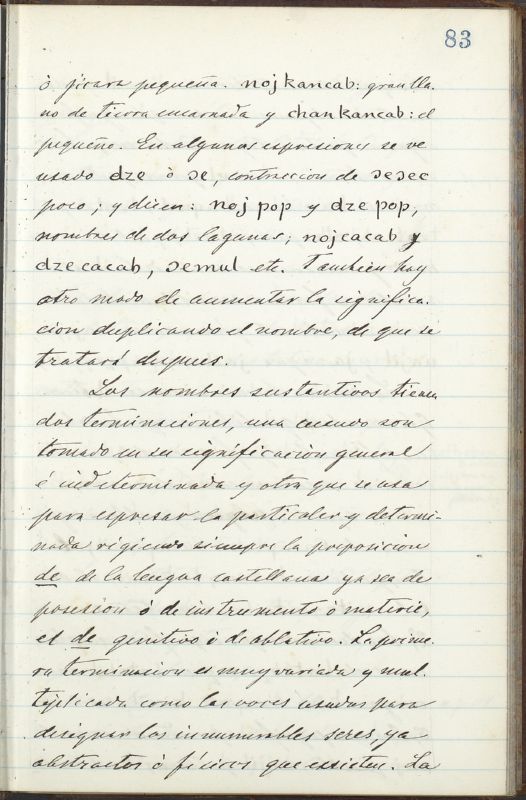 83
ò jícara pequeña. nojkancab: gran lla.
no de tierra encarnada y chankancab: el
pequeño. En algunas espresiones se ve
usado dze ò ɔe, contraccion de ɔeɔec
poco; y dicen: noj pop y dze pop,
nombres de dos lagunas; nojcacab y
dzecacab, ɔemul etc. Tambien hay
otro modo de aumentar la significa.
cion duplicando el nombre, de que se
tratará despues.
Los nombres sustantivos tienen
dos terminaciones, una cuando son
tomado en su significacion general
é indeterminada y otra que se usa
para espresar la particular y determi-
nada rigiendo siempre la preposicion
de de la lengua castellana ya sea de
posesion ó de instrumento ò materia,
el de genitivo ò de ablativo. La prime
ra terminacion es muy variada y mul.
tiplicada como las voces usadas para
designar los innumerables seres, ya
abstractos ò físicos que ecsisten. La